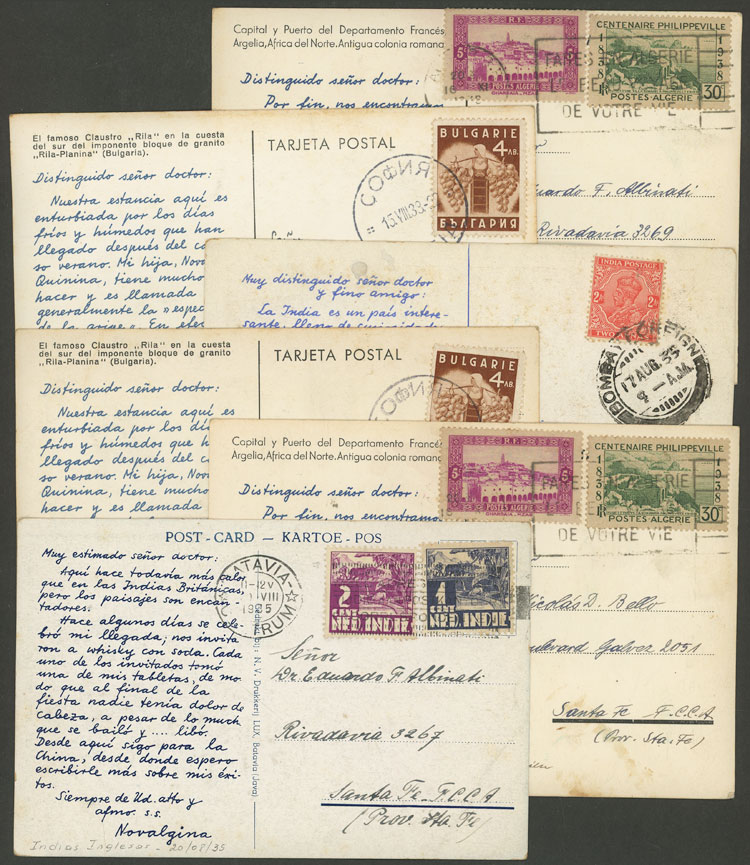 Capital y Puerto del Departamento Francés
Argelia, Africa del Norte. Antigua colonia romana
Distinguido señor doctor:
Por fin, nos encontramos
R.F.
5
POSTES ALGERIE
CENTENAIRE PHILIPPEVILLE
1838
1938
RF
POSTES ALGERIE 30
DE VOTRE VIE
Eduardo F. Albinati
Rivadavia 3269
El famoso Claustro „Rila" en la cuesta
del sur del imponente bloque de granito
„Rila-Planina" (Bulgaria).
Distinguido señor doctor:
Nuestra estancia aquí es
enturbiada por los días
fríos y húmedos que han
llegado después del
so verano. Mi hija,
Quinina, tiene mucho
hacer y es llamada
generalmente la
TARJETA POSTAL
BULGARIE
4
ЛВ.
БЪЛГАРИЯ
СОФИЯ
15.VIII.39
Muy distinguido señor doctor
y fino amigo:
La India es un país intere-
sante, lleno de
INDIA POSTAGE
2As
BOMBAY FOREIGN
17 AUG. 35
A.M.
El famoso Claustro „Rila" en la cuesta
del sur del imponente bloque de granito
„Rila-Planina" (Bulgaria).
Distinguido señor doctor:
Nuestra estancia aquí es
enturbiada por los
fríos y húmedos que
llegado después del
so verano. Mi hija,
Quinina, tiene mucho
hacer y es llamada
TARJETA POSTAL
BULGARIE
4
ЛВ.
Capital y Puerto del Departamento Francés
Argelia, Africa del Norte. Antigua colonia romana
Distinguido señor doctor:
Por fin, nos encontramos
R.F.
5
POSTES ALGERIE
CENTENAIRE PHILIPPEVILLE
1838
1938
RF
POSTES ALGERIE 30
DE VOTRE VIE
Nicolás D. Bello
Boulevard Galvez 2051
Santa Fe F.C.C.A
(Prov. Sta. Fe)
POST-CARD – KARTOE-POS
Muy estimado señor doctor:
Aquí hace todavía más calor
que en las Indias Británicas,
pero los paisajes son encan-
tadores.
Hace algunos días se cele-
bró mi llegada; nos invita
ron a whisky con soda. Cada
uno de los invitados tomó
una de mis tabletas, de mo-
do que al final de la
fiesta nadie tenía dolor de
cabeza, a pesar de lo much
que se bailó y .... libó.
Desde aquí sigo para la
China, desde donde espero
escribirle más sobre mis éxi-
tos.
Siempre de Ud. atto y
afmo. s.s.
Novalgina
Indias Inglesas - 20/08/35
BATAVIA
VIII
1935
N. V. Drukkerij LUX, Batavia (Java)
2
CENT
NED INDIE
1
CENT
NED INDIE
Señor
Dr. Eduardo F. Albinati
Rivadavia 3267
Santa Fe F.C.C.A
(Prov. Sta Fe)